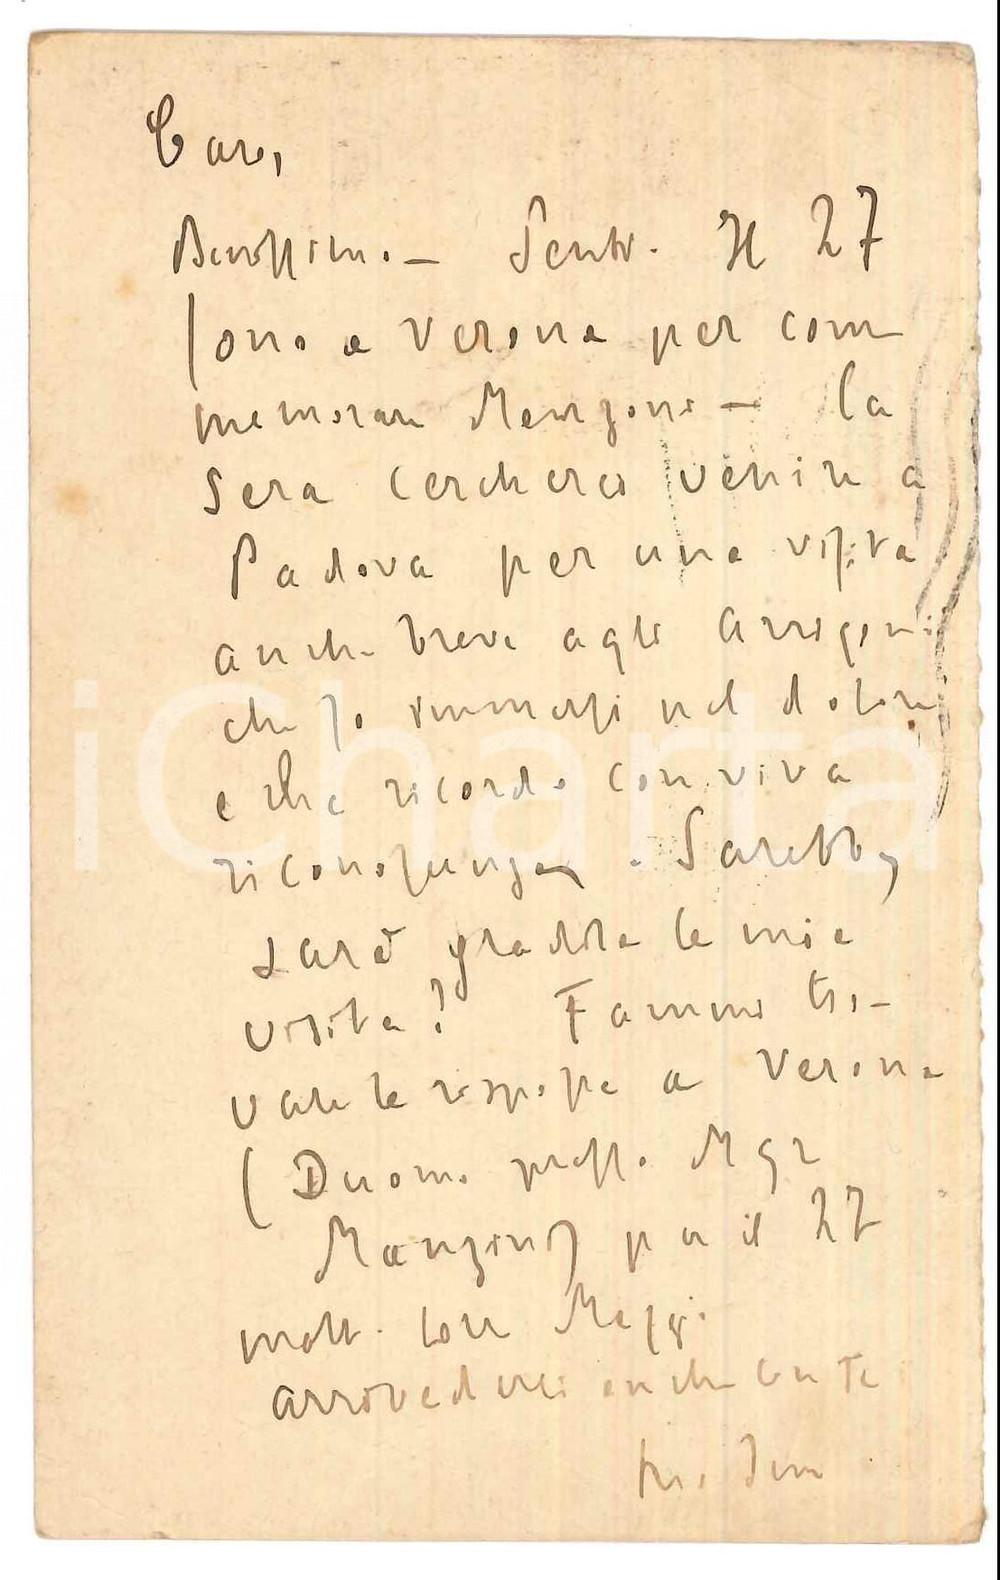 Caro,
Benissimo — Senti. Il 27
sono a Verona per com
memorare Manzoni — la
sera cercherei venire a
Padova per una visita
anche breve agli Arrigoni
che so immersi nel dolore
e che ricordo con viva
riconoscenza. Sarebbe,
sarà gradita la mia
visita? Fammi tro-
vare la risposta a Verona
(Duomo presso Mgr
Manzini) per il 27
matt.
arrivederci anche con te
tuo
iCharta